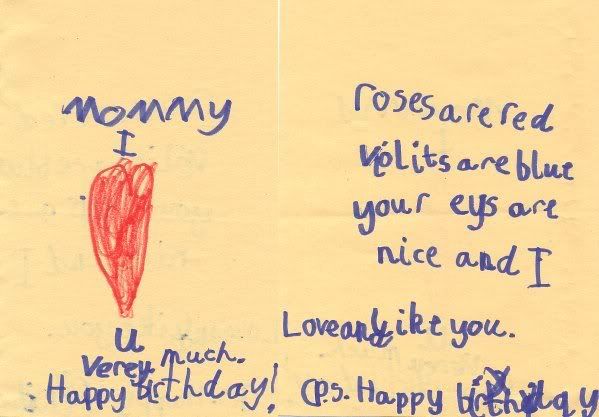 MOMMY
I
U
Verey much.
Happy birthday!
roses are red
violits are blue
your eys are
nice and I
Love and like you.
(P.S. Happy birthday